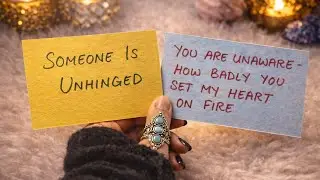 Someone Is
Unhinged
You are unaware -
how badly you
set my heart
on fire